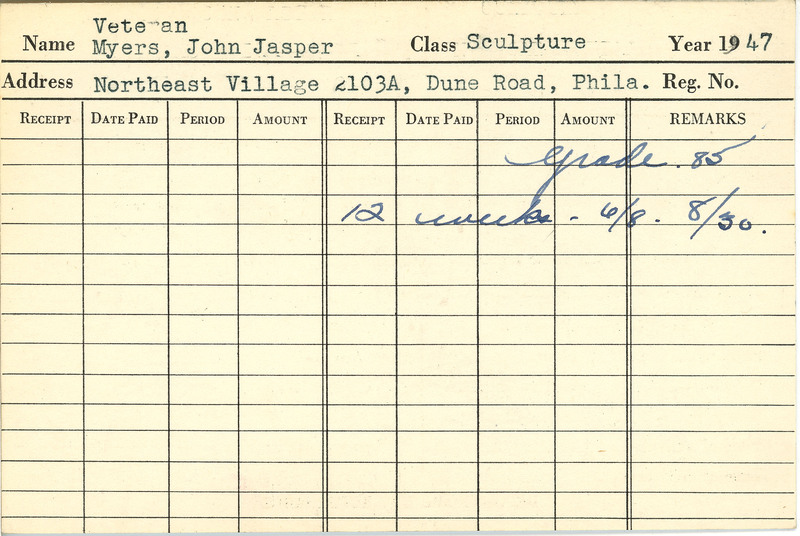 Veteran
Name Myers, John Jasper Class Sculpture Year 1947
Address Northeast Village 2103A, Dune Road, Phila. Reg. No.
RECEIPT DATE PAID PERIOD AMOUNT RECEIPT DATE PAID PERIOD AMOUNT REMARKS
Grade. 85
12 weeks - 6/8. 8/30.